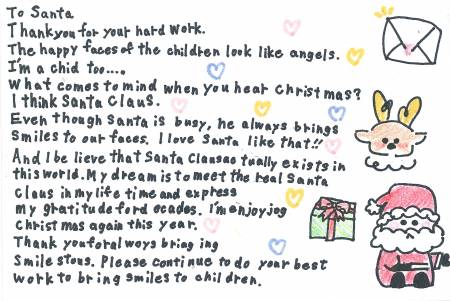 To Santa
Thankyou for your hard work.
The happy faces of the children look like angels.
I'm a chid too....
What comes to mind when you hear Christmas?
I think Santa Claus.
Even though Santa is busy, he always brings
smiles to our faces. I love Santa like that!!
And I be lieve that Santa Clausac tually exists in
this world. My dream is to meet the real Santa
Claus in my life time and express
my gratitude ford ecades. I'm enjoyjog
Christ mas again this year.
Thank youforal ways bring ing
Smile stous. Please continue to do your best
work to bring smiles to children.